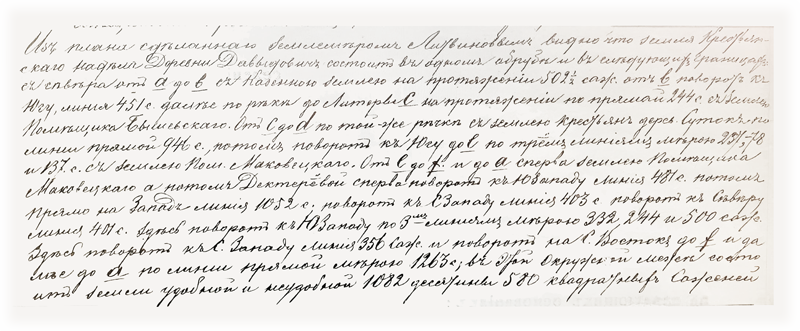 Изъ плана сдѣланнаго землемѣромъ Литвиновымъ видно что земля Крестьян-
скаго надѣла Деревни Давыдовичъ состоитъ въ одномъ обрубѣ и въ слѣдующихъ границахъ
съ сѣвера отъ a до b съ Казенною землею на протяженіи 502½ саж. отъ b поворотъ къ
Югу, линія 451 с. далѣе по рѣкѣ до Литеры C на протяженіи по прямой 244 с. съ землею
Помѣщика Бышевскаго. Отъ C до d по той-же рѣчкѣ съ землею Крестьянъ дерев. Сутокъ по
линіи прямой 946 с. потомъ поворотъ къ Югу до e по трёмъ линіямъ мѣрою 251, 748
и 137. с. съ землею Пом. Маковецкаго. Отъ e до f и до a сперва землею Помѣщика
Маковецкаго а потомъ Дектерёвой сперва поворотъ къ ЮЗападу линія 481 с. потомъ
прямо на Западъ линія 1052 с. поворотъ къ СЗападу линія 403 с поворотъ къ Сѣверу
линія 401 с. Здѣсь поворотъ къ ЮЗападу по 3мъ линіямъ мѣрою 332, 244 и 500 саж.
Здѣсь поворотъ къ С. Западу линія 356 саж. и поворотъ на С. Востокъ до f и да
лѣе до a по линіи прямой мѣрою 1263 с; въ этой окружной межѣ состо
итъ земли удобной и неудобной 1082 десятины 580 квадратныхъ Саженей